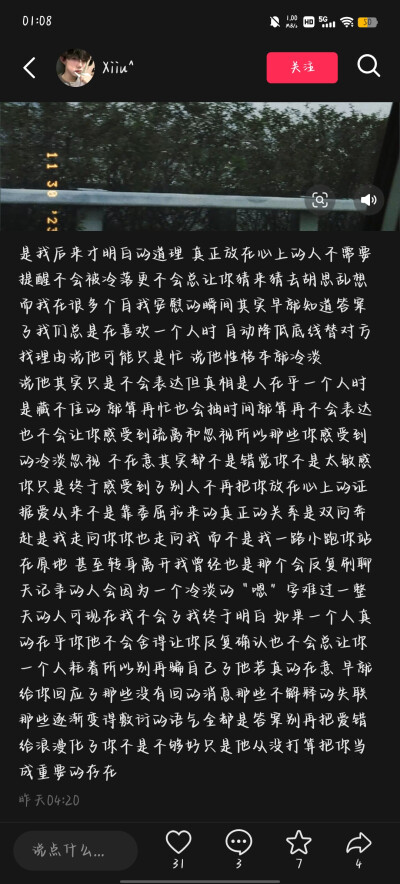 01:08
1.00
M/s
HD
5G
50
Xiiu^
关注
11 30 '23
是我后来才明白的道理 真正放在心上的人不需要
提醒不会被冷落更不会总让你猜来猜去胡思乱想
而我在很多个自我安慰的瞬间其实早都知道答案
了我们总是在喜欢一个人时 自动降低底线替对方
找理由说他可能只是忙 说他性格本都冷淡
说他其实只是不会表达但真相是人在乎一个人时
是藏不住的 都算再忙也会抽时间都算再不会表达
也不会让你感受到疏离和忽视所以那些你感受到
的冷淡忽视 不在意其实都不是错觉你不是太敏感
你只是终于感受到了别人不再把你放在心上的证
据爱从来不是靠委屈求来的真正的关系是双向奔
赴是我走向你你也走向我 而不是我一路小跑你站
在原地 甚至转身离开我曾经也是那个会反复刷聊
天记录的人会因为一个冷淡的“嗯”字难过一整
天的人可现在我不会了我终于明白 如果一个人真
的在乎你他不会舍得让你反复确认也不会总让你
一个人耗着所以别再骗自己了他若真的在意 早都
给你回应了那些没有回的消息那些不解释的失联
那些逐渐变得敷衍的语气全都是答案别再把爱错
给浪漫化了你不是不够好只是他从没打算把你当
成重要的存在
昨天04:20
说点什么...
31
3
7
4